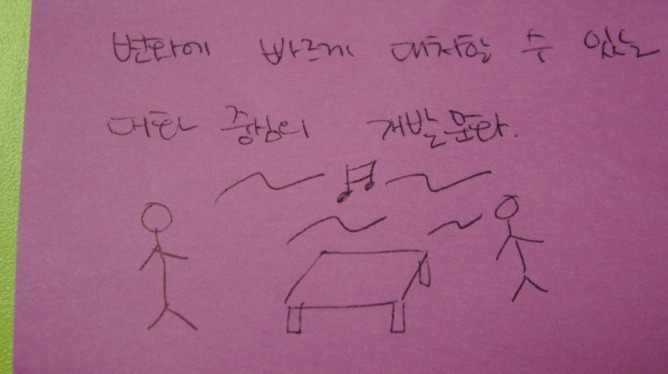 변화에 빠르게 대처할 수 있는
대화 중심의 개발문화.